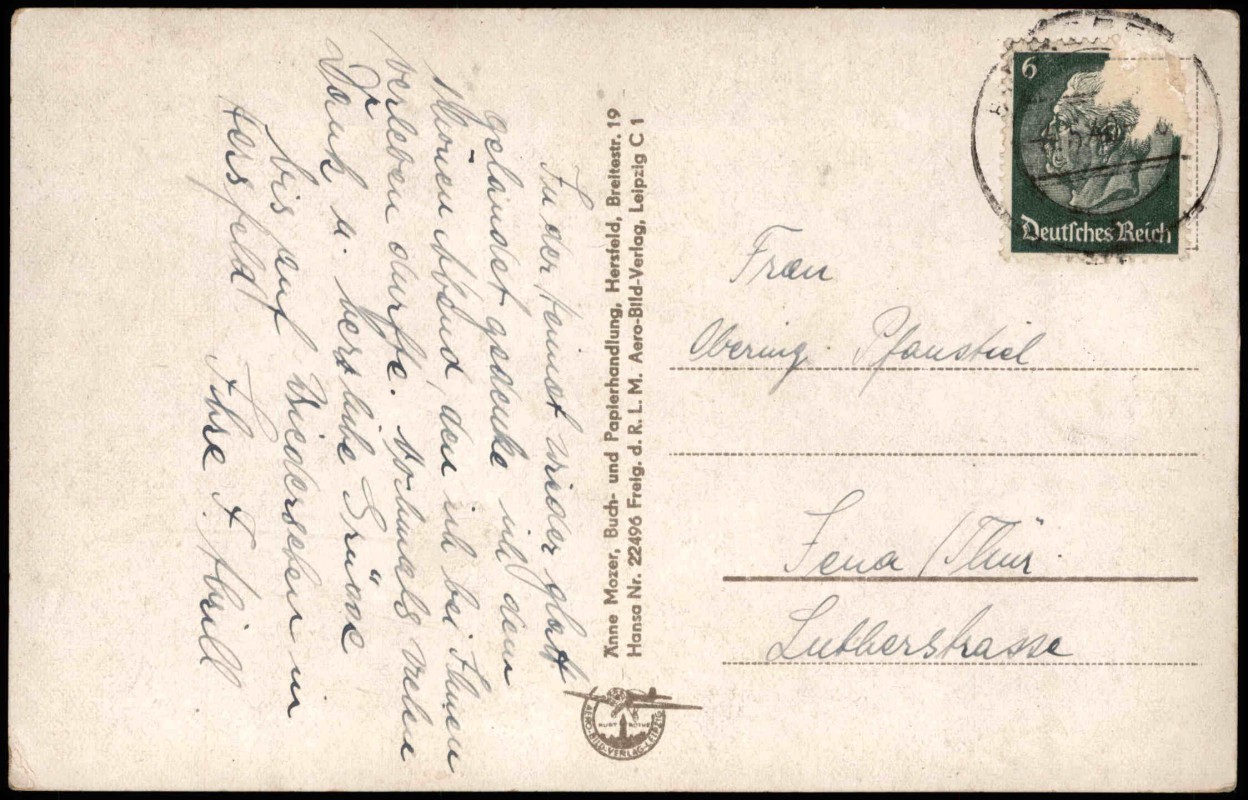 In der Heimat wieder glatt
gelandet gedenke ich dem
schönen Abend, den ich bei Ihnen
verleben durfte. Nochmals vielen
Dank u. herzliche Grüsse
bis auf Wiedersehen in
Hersfeld Ihre A.
Änne Mozer, Buch- und Papierhandlung, Hersfeld, Breitestr. 19
Hansa Nr. 22496 Freig. d. R. L. M. Aero-Bild-Verlag, Leipzig C 1
AERO-BILD-VERLAG-LEIPZIG
KURT ROTHE
6
Deutsches Reich
Frau
Obering. Pfanstiel
Jena / Thür.
Lutherstrasse